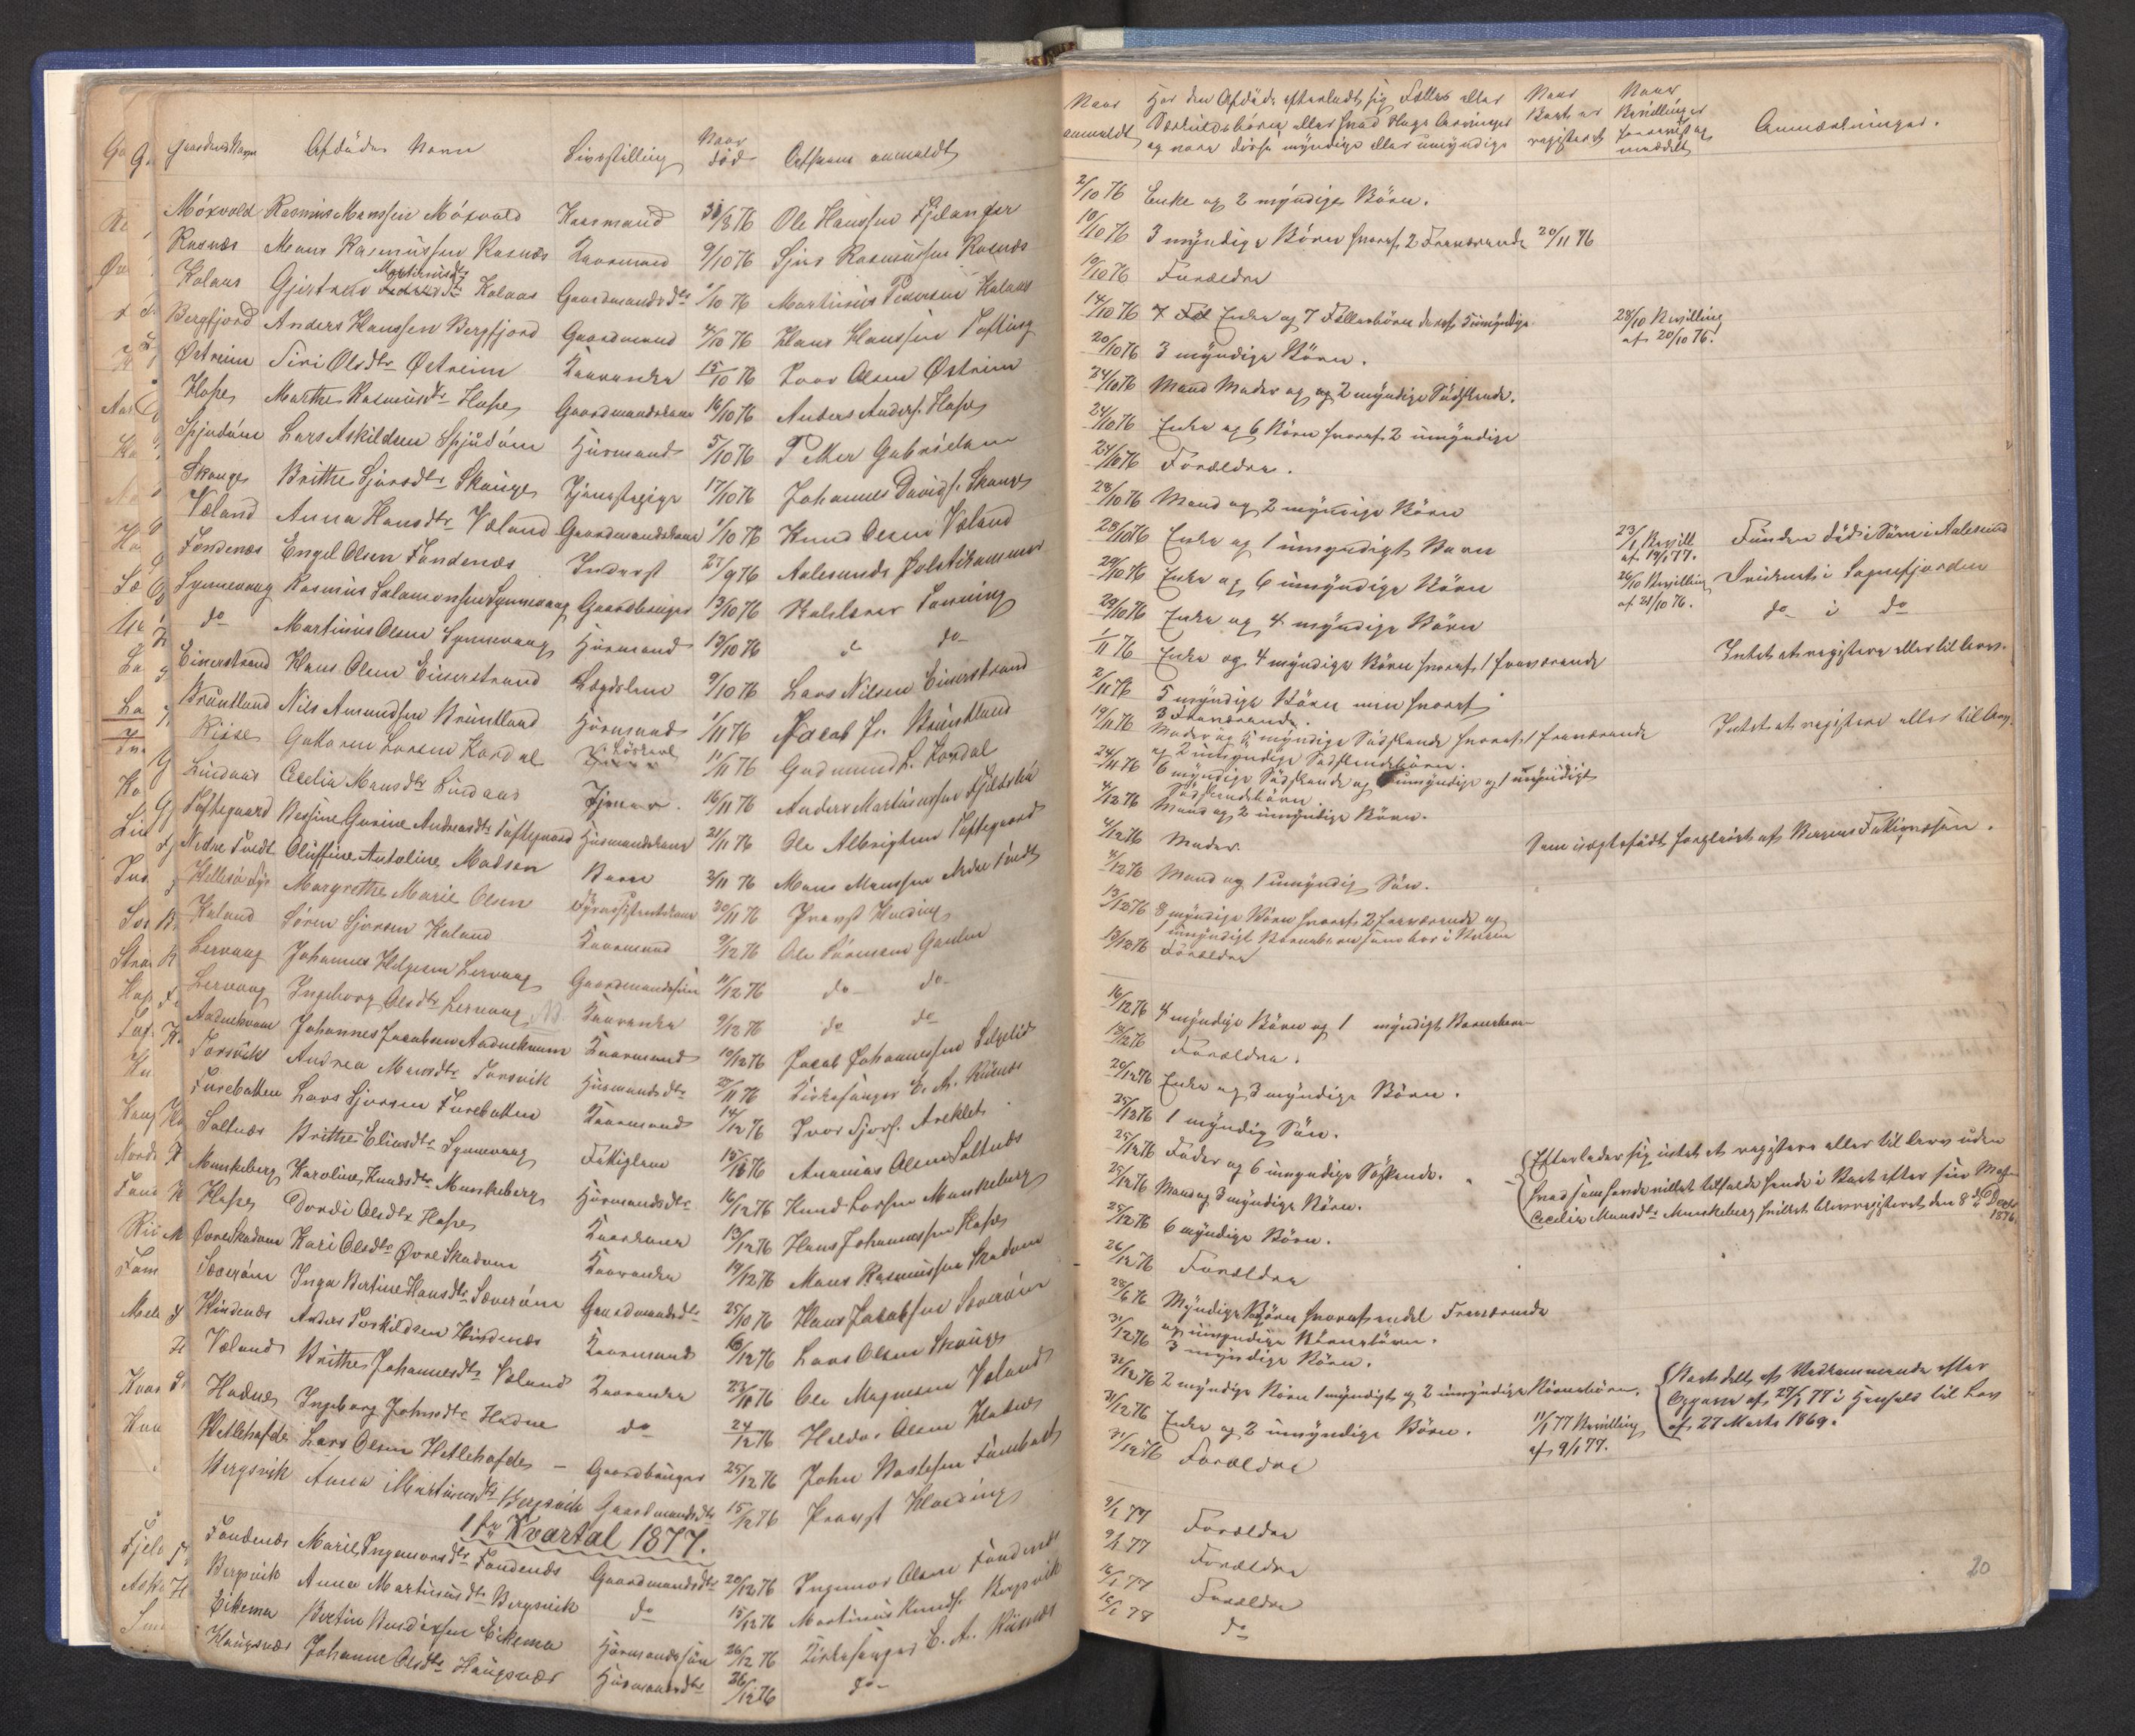 Gaardens Navn Afdødes Navn Livsstilling Naar død Af hvem anmeldt
Møxvold Rasmus Monssen Møxvold Kaarmand 31/8 76 Ole Hanssen Fjelanger
Risnæs Mons Rasmussen Risnæs Kaarmand 9/10 76 Sjur Rasmussen Risnæs
Kolaas Gjertrud Martinusdtr Kolaas Gaardmandsdtr 1/10 76 Martinus Pedersen Kolaas
Bergfjord Anders Hanssen Bergfjord Gaardmand 4/10 76 Hans Hanssen Tofting
Østreim Siri Olsdtr Østreim Kaarenke 15/10 76 Ivar Olsen Østreim
Hope Marthe Rasmusdtr Hope Gaardmandskone 16/10 76 Anders Anders. Hope
Spjudøm Lars Askildsen Spjudøm Huusmand 5/10 76 Petter Gabrielsen
Skauge Brithe Sjursdtr Skauge Tjenestepige 17/10 76 Johannes Davids. Skauge
Væland Anna Hansdtr Væland Gaardmandskone 1/10 76 Knud Olsen Væland
Fondenæs Engel Olsen Fondenæs Inderst 27/9 76 Aalesunds Politikammer
Synnevaag Rasmus Salamonsen Synnevaag Gaardbruger 13/10 76
do Martinus Olsen Synnevaag Huusmand 13/10 76 do
Einerstrand Hans Olsen Einerstrand Lægdslem 9/10 76 Lars Nilsen Einerstrand
Bruntland Nils Amundsen Bruntland Huusmand 1/11 76 Jacob Js. Bruntland
Risse Guttorm Larsen Kordal Løskarl 11/11 76 Gudmund L. Kordal
Lindaas Cecilia Monsdtr Lindaas Tjener 16/11 76 Anders Martinussen
Toftegaard Bessine Gurine Andreasdtr Toftegaard Huusmandskone 21/11 76 Ole Albrigtsen Toftegaard
Nedre Tvedt Oluffine Antoline Madsen Barn 2/11 76 Mons Monssen Nedre Tvedt
Hellesø Fyr Margrethe Marie Olsen Fyrassistentskone 30/11 76 Provst Harding
Kaland Søren Sjursen Kaland Kaarmand 9/12 76 Ole Sørensen
Lervaag Johannes Helgesen Lervaag Gaardmandssøn 11/12 76 do do
Lervaag Ingeborg Olsdtr Lervaag Kaarenke 9/12 76 do do
Aadnekvam Johannes Jacobsen Aadnekvam Kaarmand 10/12 76 Jacob Johannessen
Torsvik Andrea Monsdtr Torsvik Huusmandsdtr 27/11 76 Kirkesanger E. A. Risnæs
Furebotten Lars Sjursen Furebotten Kaarmand 14/12 76 Ivar Sjurs. Areklet
Soltnæs Brithe Eliasdtr Synnevaag Fattiglem 15/12 76 Ananias Olsen Soltnæs
Munkeberg Karoline Knudsdtr Munkeberg Huusmandsdtr 16/12 76 Knud Larsen Munkeberg
Hope Dordi Olsdtr Hope Kaarkone 13/12 76 Hans Johannessen Hope
Øvre Skodven Kari Olsdtr Øvre Skodven Kaarenke 19/12 76 Mons Rasmussen Skodven
Sæverøen Inga Bertine Hansdtr Sæverøen Gaardmandsdtr 25/10 76 Hans Jacobsen Sæverøen
Hindenæs Anders Torkildsen Hindenæs Kaarmand 6/12 76 Lars Olsen Skauge
Væland Brithe Johannesdtr Væland Kaarenke 23/11 76 Ole Magnesen Væland
Hodne Ingeborg Johnsdtr Hodne do 24/12 76 Haldor Olsen Hodne
Hetlehofde Lars Olsen Hetlehofde – Gaardbruger 25/12 76 John
Bergsvik Anna Martinusdtr Bergsvik Gaardmandsdtr 15/12 76 Provst Harding
1ste Kvartal 1877.
Fondenæs Marie Ingemorsdtr Fondenæs Gaardmandsdtr 20/12 76 Ingemor Olsen Fondenæs
Bergsvik Anna Martinusdtr Bergsvik do 15/12 76 Martinus Knuds. Bergsvik
Eikemo Bertin Eikemo Huusmandssøn 26/12 76 Kirkesanger E. A. Risnæs
Haugsvær Johanne Olsdtr Haugsvær Huusmandsdtr 26/12 76 do
Naar anmeldt Har den Afdøde efterladt sig Fælles eller Særkuldsbørn eller hvad Slags Arvinger og vare disse myndige eller umyndige Naar Boet er registeret Naar Bevillinger foreviist og meddelt Anmærkninger.
2/10 76 Enke og 2 myndige Børn.
10/10 76 3 myndige Børn hvoraf 2 Fraværende 20/11 76
10/10 76 Forældre
14/10 76 Enke og 7 Fællesbørn deraf 5 umyndige 28/10 Bevilling af 20/10 76.
20/10 76 3 myndige Børn.
24/10 76 Mand Moder og og 2 myndige Sødskende.
24/10 76 Enke og 6 Børn hvoraf 2 umyndige
24/10 76 Forældre.
28/10 76 Mand og 2 myndige Børn
28/10 76 Enke og 1 umyndigt Barn 23/1 Bevill. af 19/1 77. Funden død i Søen i Aalesund
29/10 76 Enke og 6 umyndige Børn 26/10 Bevilling af 21/10 76. Druknet i Sognefjorden
29/10 76 Enke og 4 myndige Børn do i do
1/11 76 Enke og 4 myndige Børn hvoraf 1 fraværende Intet at registere eller til Arv.
2/11 76 5 myndige Børn men hvoraf 3 Fraværende.
19/11 76 Moder og 5 myndige Sødskende hvoraf 1 fraværende og 2 umyndige Sødskendebørn. Intet at registere eller til Arv.
24/11 76 6 myndige Sødskende og umyndige og 1 umyndigt Sødskendebørn.
4/12 76 Mand og 2 umyndige Børn.
4/12 76 Moder. Som uægtefødt forpleiet af Bergens Fattigvæsen.
4/12 76 Mand og 1 umyndig Søn.
13/12 76 8 myndige Børn hvoraf 2 fraværende og 1 umyndigt Barnebarn som bor i Bergen
13/12 76 Forældre
16/12 76 4 myndige Børn og 1 myndigt Barnebarn
18/12 76 Forældre.
20/12 76 Enke og 3 myndige Børn.
25/12 76 1 myndig Søn.
25/12 76 Fader og 6 umyndige Søskende. Efterlader sig intet at registere eller til Arv uden hvad som hende tilfalde hende i Boet efter sin Moder Cecilia Monsdtr Munkeberg hvilket blev registeret den 8de Decbr 1876.
25/12 76 Mand og 3 myndige Børn.
25/12 76 6 myndige Børn.
26/12 76 Forældre
28/6 76 Myndige Børn hvoraf endel Fraværende og umyndige Børnebørn.
31/12 76 3 myndige Børn.
31/12 76 2 myndige Børn 1 myndigt og 2 umyndige Børnebørn. Boet delt af Vedkommende efter Opgave af 27/1 77 i Henhold til Lov af 27 Marts 1869.
31/12 76 Enke og 2 umyndige Børn. 11/1 77 Bevilling af 9/1 77.
31/12 76 Forældre
9/1 77 Forældre
9/1 77 Forældre
16/1 77 Forældre
16/1 77 do
20